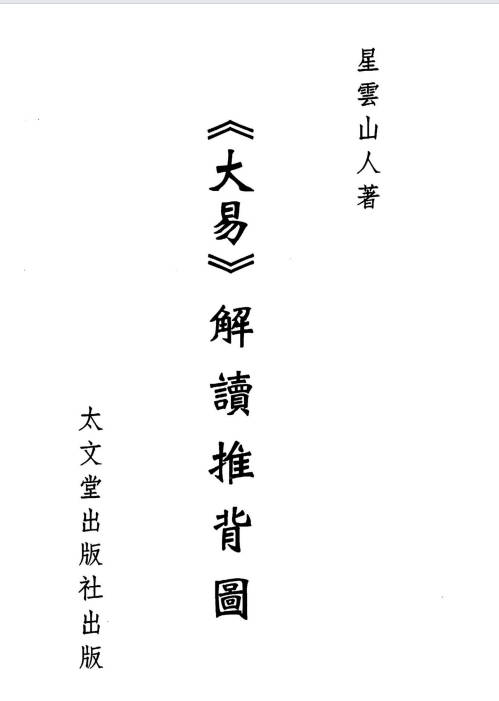 星雲山人著
《大易》解讀推背圖
太文堂出版社出版